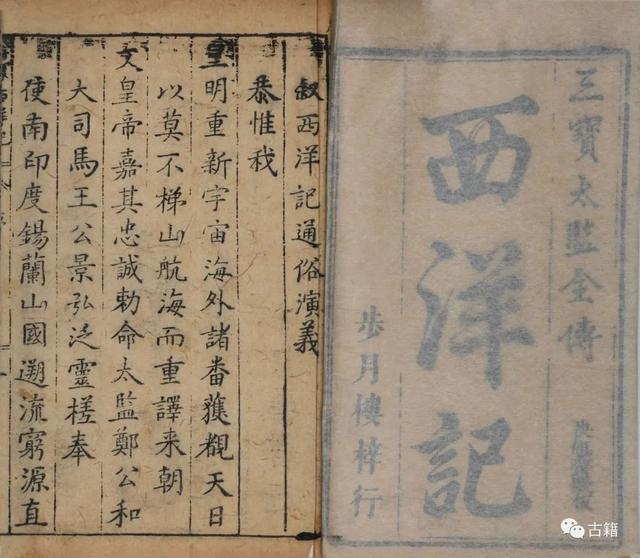 三寶太監全傳
西洋記
步月樓梓行
叙西洋記通俗演義
恭惟我
皇明重新宇宙海外諸番獲覩天日
以莫不梯山航海而重譯来朝
文皇帝嘉其忠誠勅命太監鄭公和
大司馬王公景弘泛靈槎奉
使南印度錫蘭山國遡流窮源直
古籍